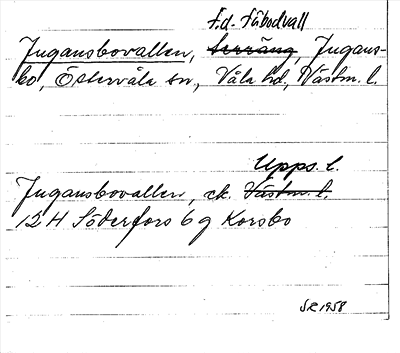 F.d. Fäbodvall
Jugansbovallen, terräng, Jugans-
bo, Östervåla sn, Våla hd, Västm. l.
Upps. l.
Jugansbovallen, ek. Västm. l.
12 H Söderfors 6 g Korsbo
SR 1958